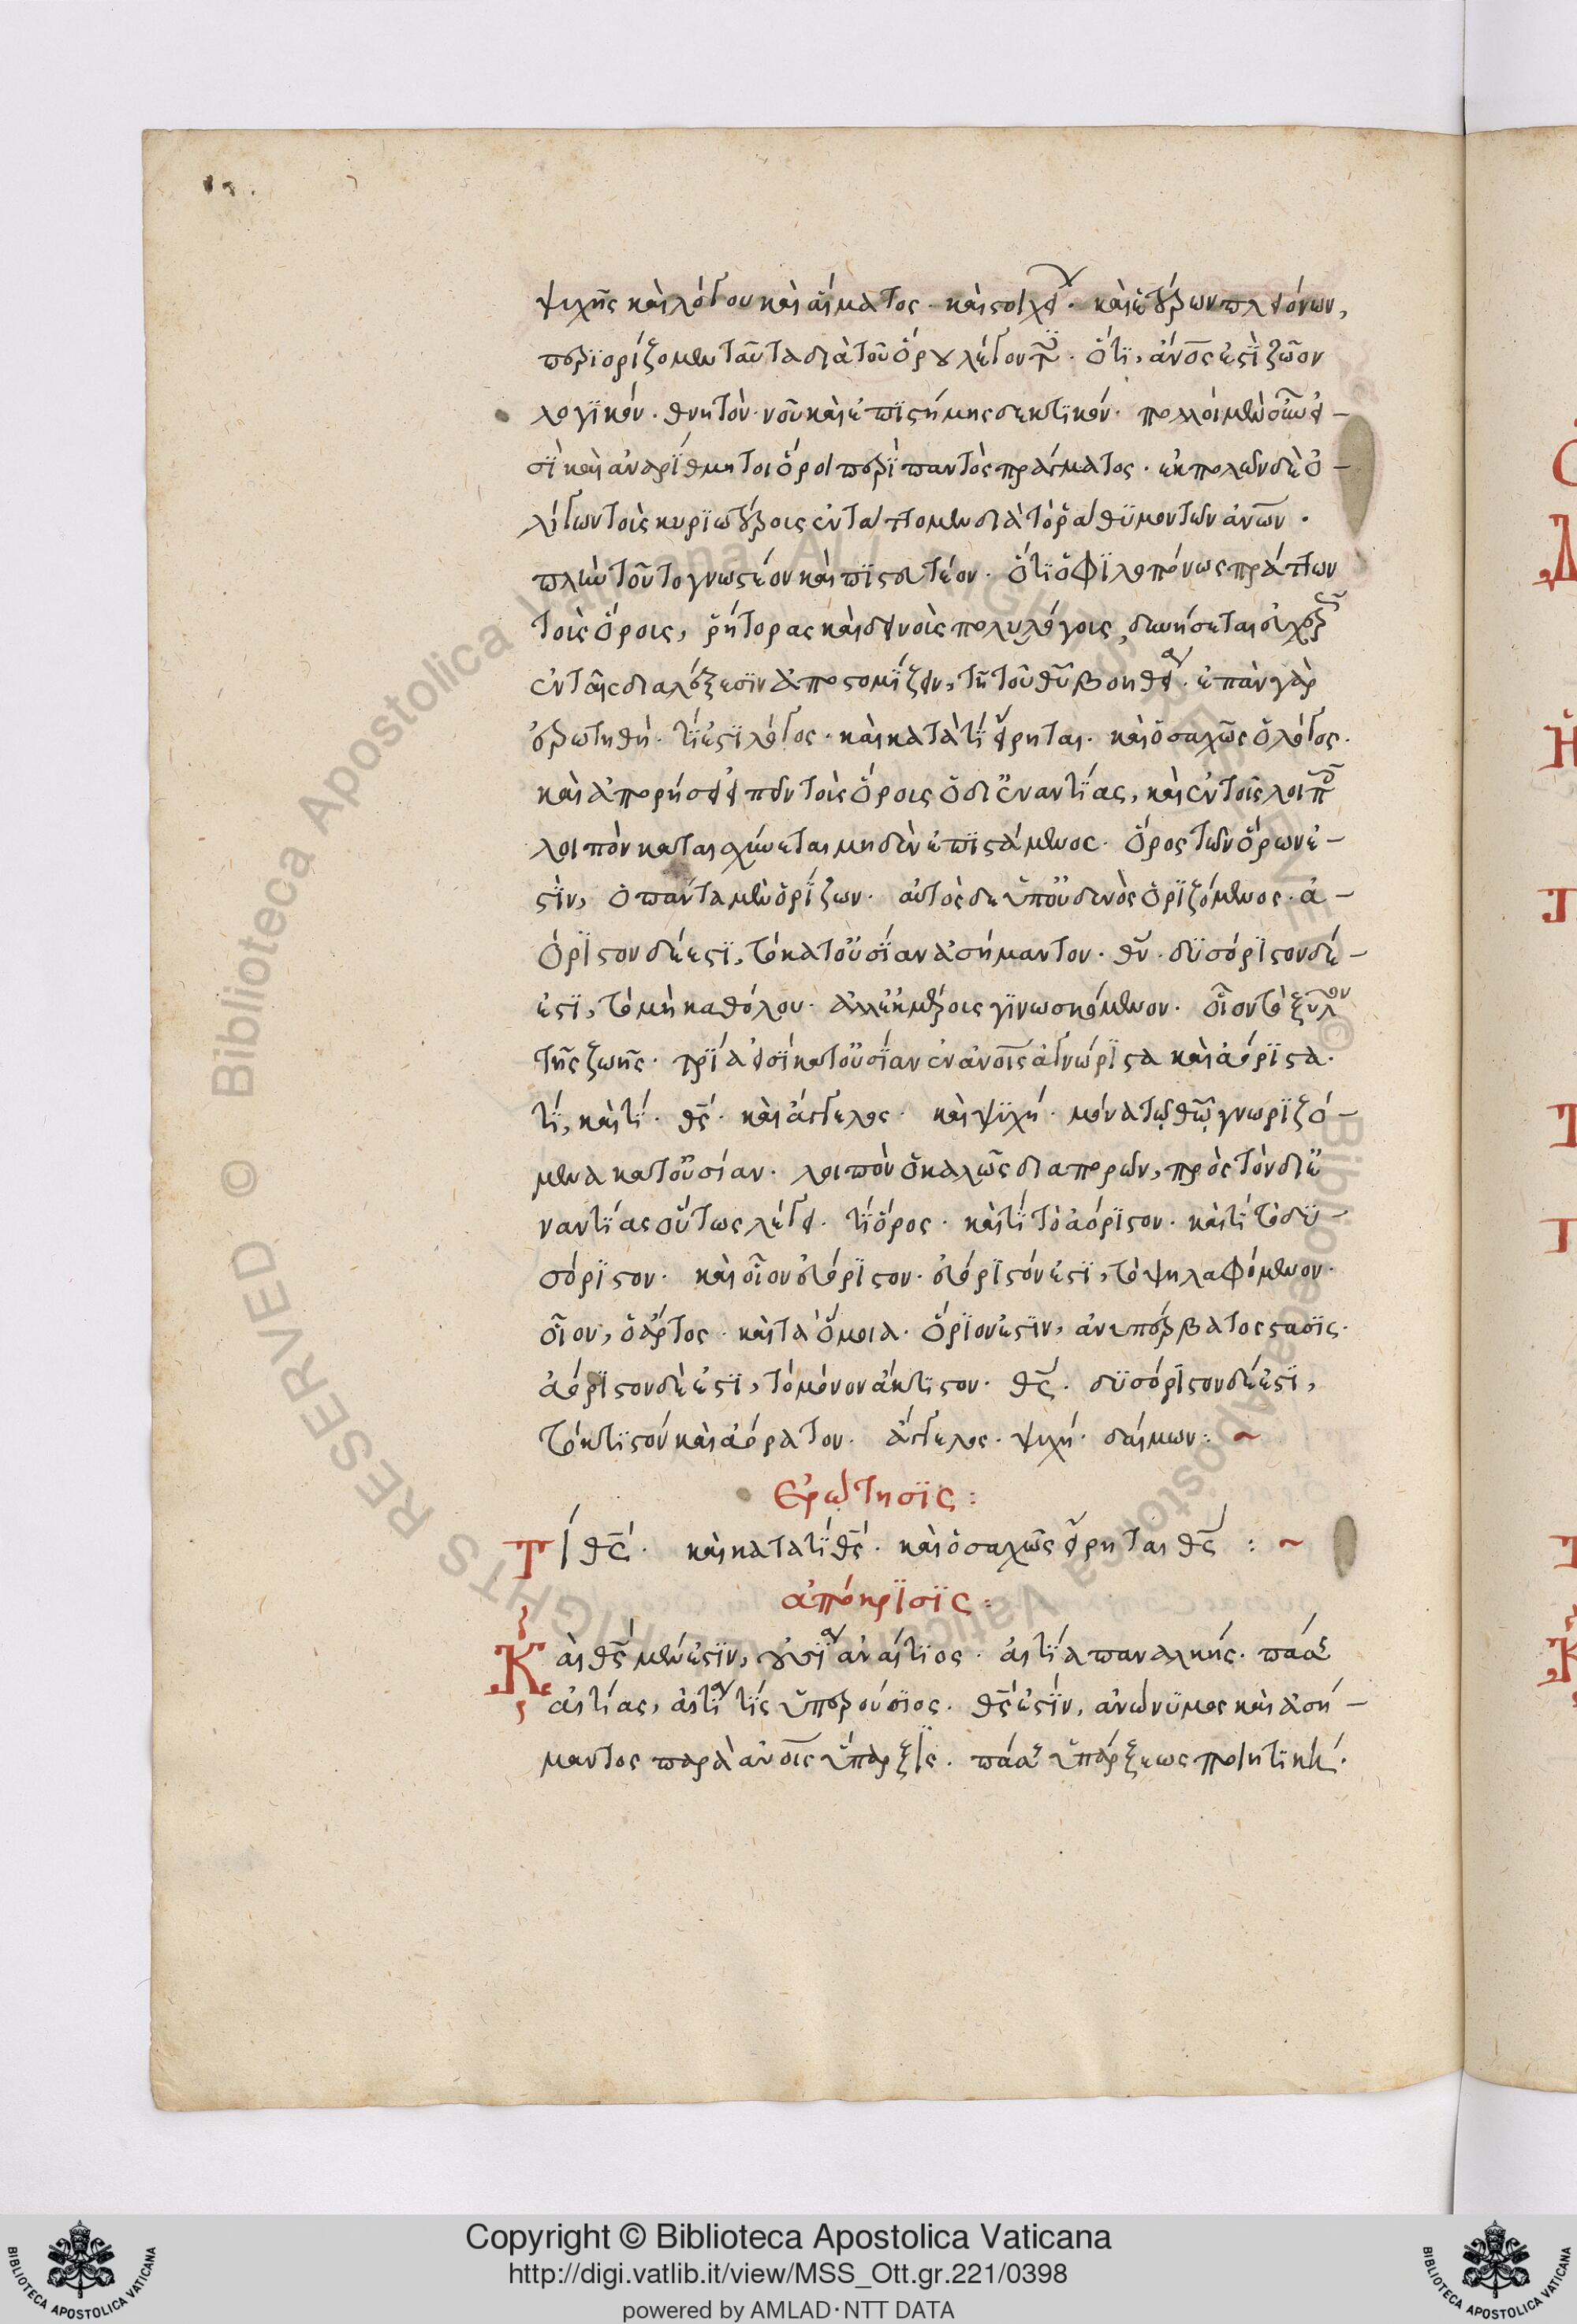 ψυχῆς καὶ λόγου καὶ αἵματος. καὶ στοιχείων. καὶ ἑτέρων πλειόνων,
περιορίζομεν ταῦτα διὰ τοῦ ὅρου λέγοντες. ὅτι, ἄνος ἐστὶ ζῶον
λογικὸν. θνητὸν. νοῦ καὶ ἐπιστήμης δεκτικόν. πολλοὶ μὲν οὖν εἰ-
σὶ καὶ ἀναρίθμητοι ὅροι περὶ παντὸς πράγματος. ἐκ πολλῶν δὲ ὀ-
λίγων τοῖς κυριωτέροις
πλὴν τοῦτο γνωστέον καὶ πιστευτέον. ὅτι ὁ φιλοπόνως πράττων
τοῖς ὅροις, ῥήτορας καὶ δεινοῖς πολυλόγοις, δυνήσεται
ἐν ταῖς διαλέξεσιν ἀποστομίζειν, τῆ τοῦ θυ βοηθεία. ἐπὰν γὰρ
ἐρωτηθῆ. τί ἐστι λόγος. καὶ κατὰ τί εἴρηται. καὶ ὁσαχῶς ὁ λόγος.
καὶ ἀπορήσει εἰπεῖν τοῖς ὅροις ὁ δι ἐναντίας, καὶ ἐν τοῖς λοιποῖς
λοιπὸν καταισχύνεται μηδὲν ἐπιστάμενος. ὅρος τῶν ὅρων ἐ-
στὶν, ὁ πάντα μὲν ὁρίζων. αὐτὸς δὲ ὑπ οὐδενὸς ὁριζόμενος. ἀ-
όριστον δέ ἐστι, τὸ κατ οὐσίαν ἀσήμαντον. θν. δυσόριστον δέ
ἐστι, τὸ μὴ καθόλου. ἀλλ ἐκ μέροις γινωσκόμενον. οἷον τὸ ξύλον
τῆς ζωῆς. τρία εἰσὶ κατ οὐσίαν ἐν ἀνοις ἀγνώριστα καὶ ἀόριστα.
τί, καὶ τί. θς. καὶ ἄγγελος. καὶ ψυχή. μόνα τῷ θῶ γνωριζό-
μενα κατ οὐσίαν. λοιπὸν ὁ καλῶς διαπορῶν, πρὸς τὸν δι ἐ
ναντίας οὕτως λέγει. τί ὅρος. καὶ τί τὸ ἀόριστον. καὶ τί τὸ δυ-
σόριστον. καὶ οἷον εὐόριστον. εὐόριστόν ἐστι, τὸ ψηλαφόμενον.
οἷον, ὁ ἄρτος. καὶ τὰ ὅμοια. ὅριόν ἐστιν, ἀνυπέρβατος στάσις.
ἀόριστον δὲ ἐστι, τὸ μόνον ἄκτιστον. θς. δυσόριστον δέ ἐστι,
τὸ κτιστὸν καὶ ἀόρατον. ἄγγελος. ψυχή. δαίμων: ~
ἐρώτησις:
Τί θς. καὶ κατα τί θς. καὶ ὁσαχῶς εἴρηται θς : ~
ἀπόκρισις:
Καὶ θς μέν ἐστιν, οὐσία ἀναίτιος. αἰτία παναλκής. πάσης
αἰτίας, αἰτία τίς ὑπερούσιος. θς ἐστὶν, ἀνώνυμος καὶ ἀσή-
μαντος παρὰ ἀνοις ὕπαρξις. πάσης ὑπάρξεως ποιητική.
Copyright © Biblioteca Apostolica Vaticana
http://digi.vatlib.it/view/MSS_Ott.gr.221/0398
powered by AMLAD·NTT DATA